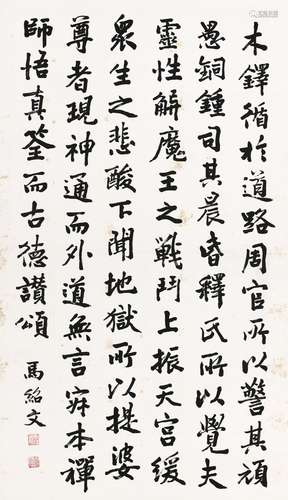 木鐸循於道路周官所以警其頑
愚銅鍾司其晨昏釋氏所以覺夫
靈性解魔王之戰鬥上振天宮緩
衆生之悲酸下聞地獄所以提婆
尊者現神通而外道無言寂本禪
師悟真筌而古德讚頌
馬紹文